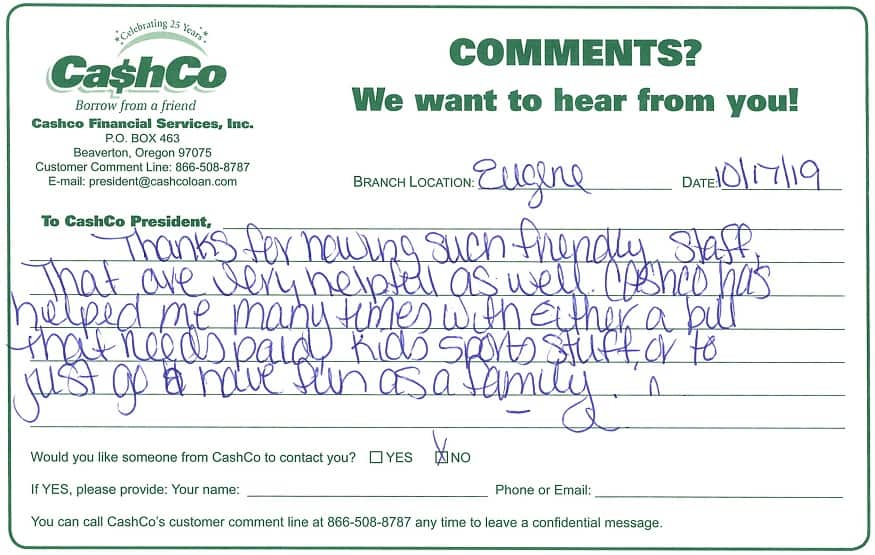 Celebrating 25 Years
Ca$hCo
Borrow from a friend
Cashco Financial Services, Inc.
P.O. BOX 463
Beaverton, Oregon 97075
Customer Comment Line: 866-508-8787
E-mail: president@cashcoloan.com
COMMENTS?
We want to hear from you!
BRANCH LOCATION: Eugene DATE: 10/17/19
To CashCo President,
Thanks for having such friendly staff.
That are very helpful as well. Cashco has
helped me many times with Either a bill
that needs paid, kids sports stuff, or to
just go & have fun as a family.
Would you like someone from CashCo to contact you? ☐ YES ☒ NO
If YES, please provide: Your name: Phone or Email:
You can call CashCo's customer comment line at 866-508-8787 any time to leave a confidential message.